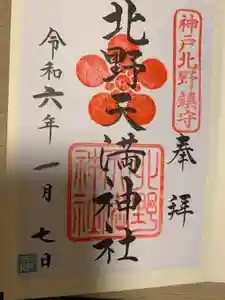 神戸北野鎮守
奉拝
北野天満神社
北野天満神社
令和六年一月七日